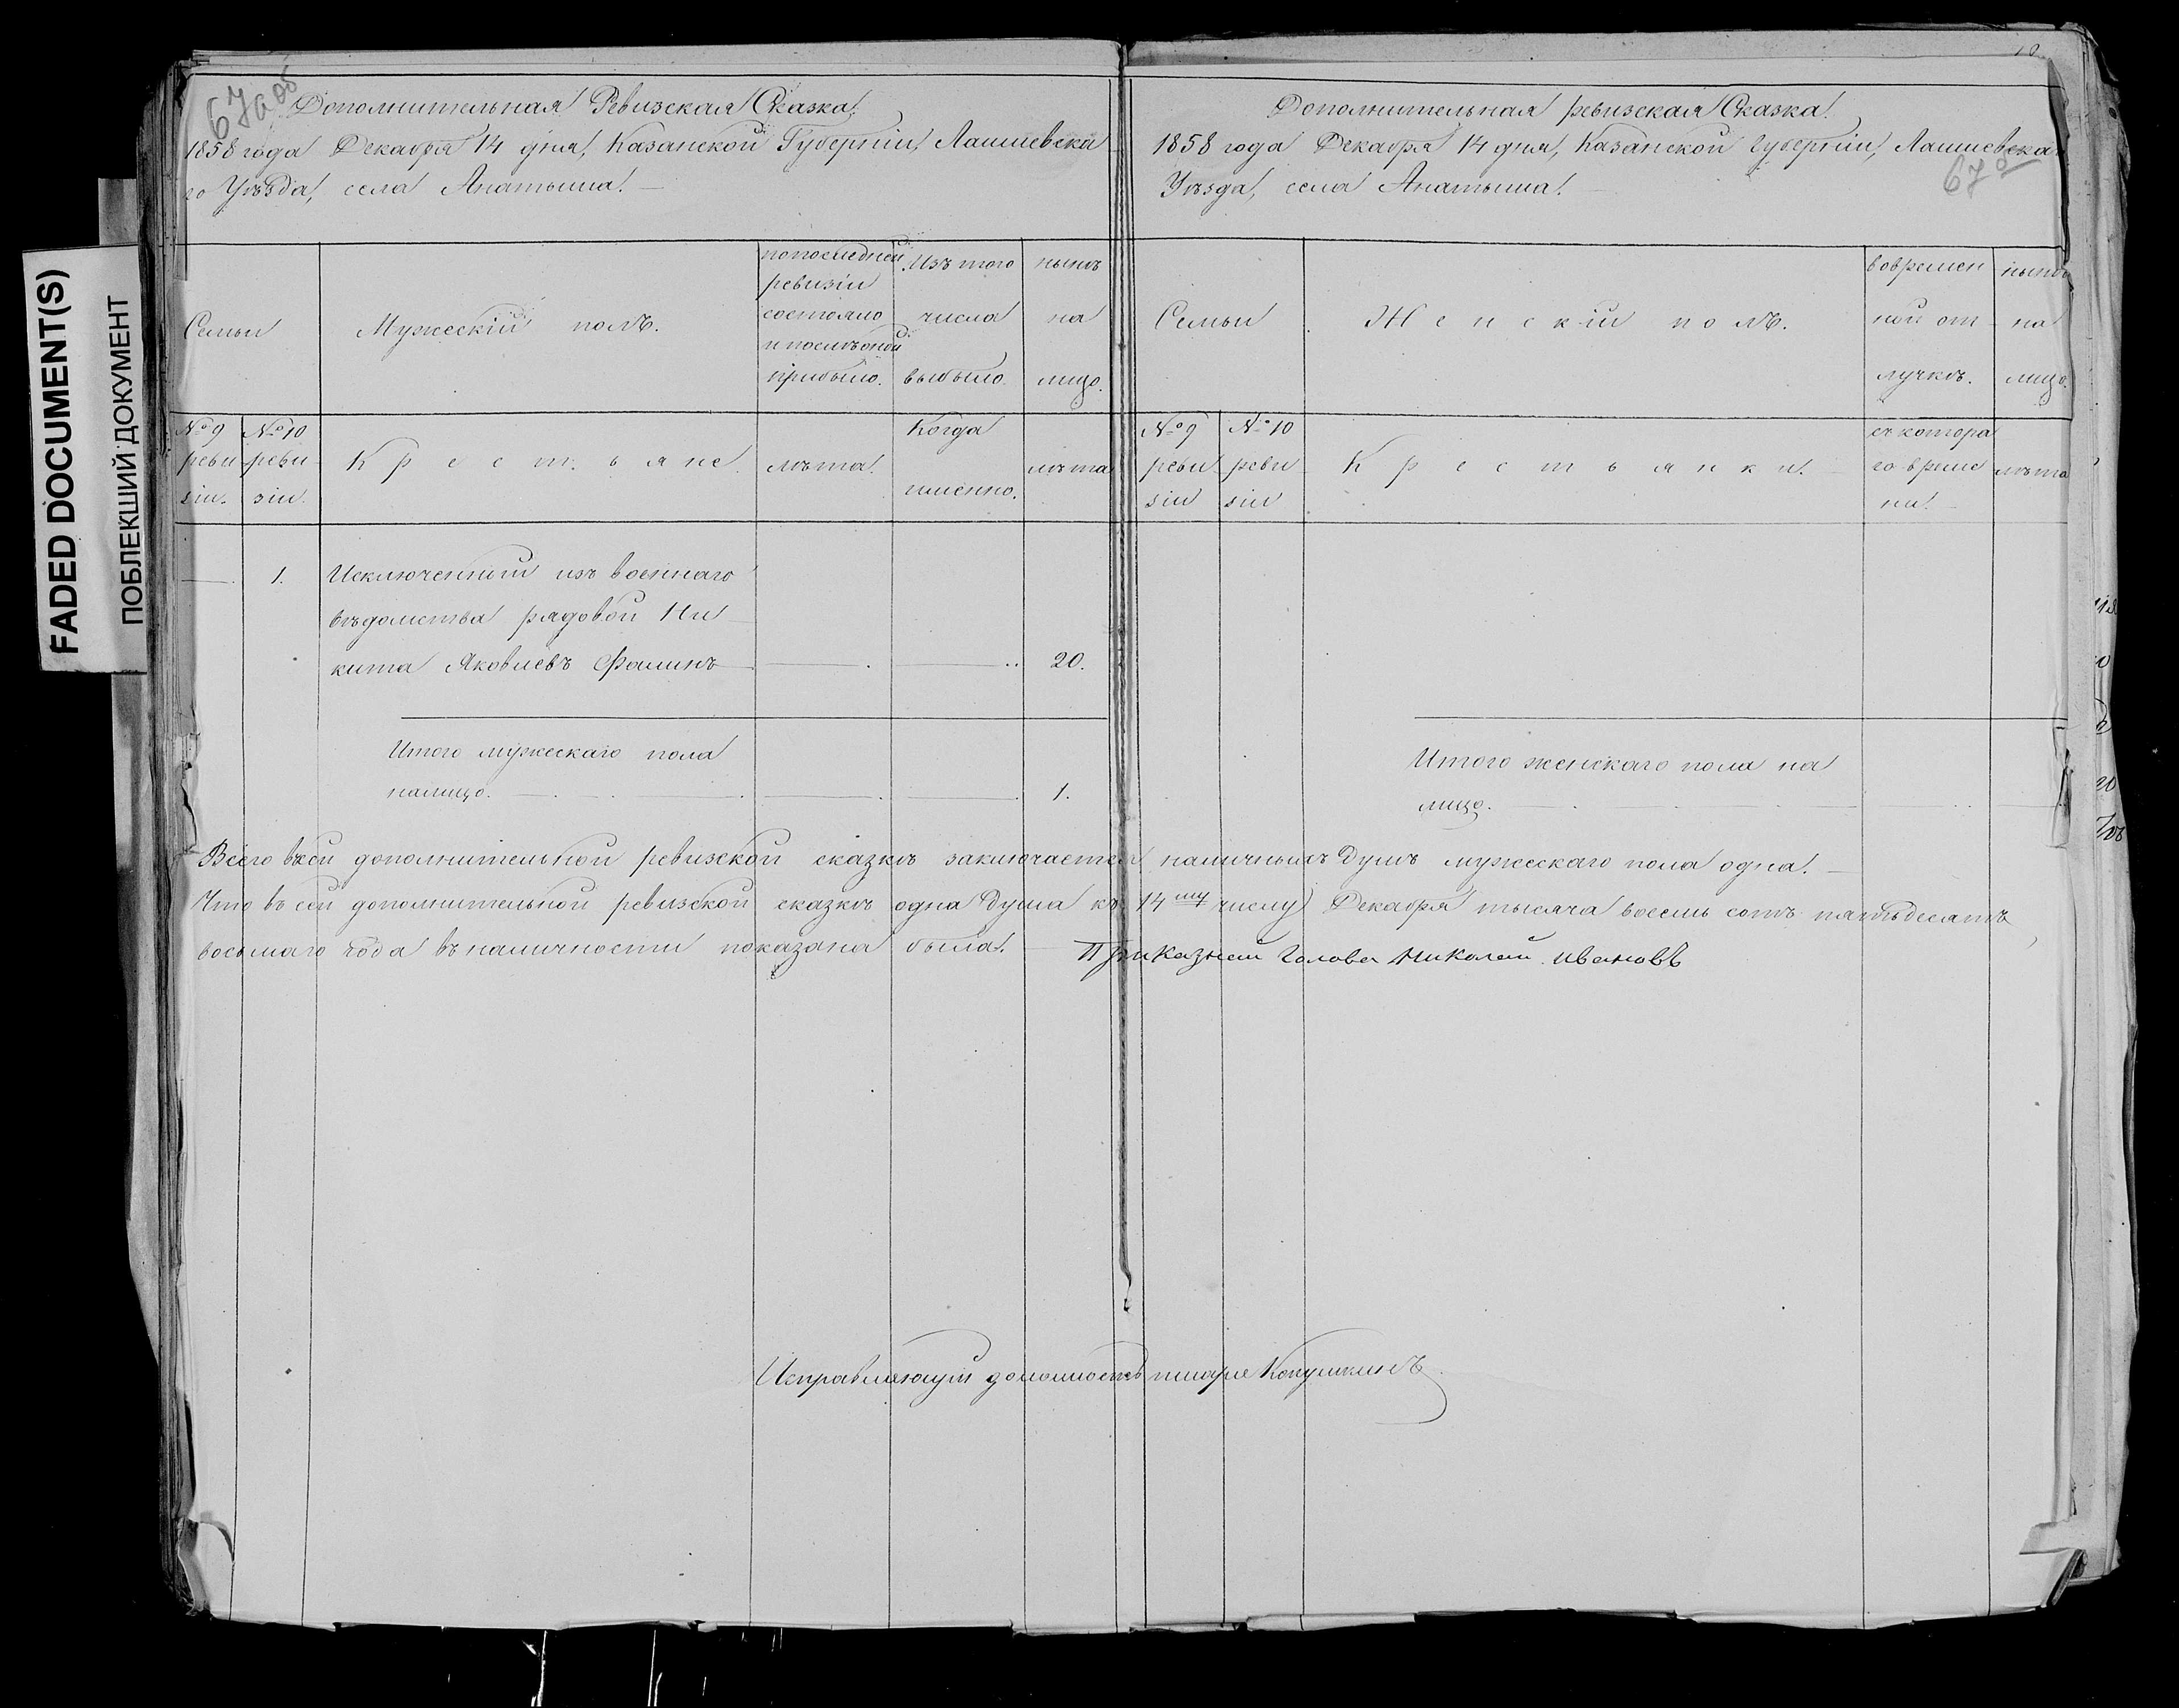 FADED DOCUMENT(S)
ПОБЛЕКШИЙ ДОКУМЕНТ
67а об
Дополнительная Ревизская Сказка.
1858 года Декабря 14 дня, Казанской Губернии, Лаишевска
го Уѣзда, села Анатыша.
Семьи
Мужескій полъ.
по последней
ревизіи
состояло
и послѣ оной
прибыло.
Изъ того
числа
выбыло.
нынѣ
на
лицо.
№ 9
реви
зіи.
№ 10
реви
зіи.
Крестьяне.
лѣта.
Когда
именно.
лѣта
1.
Исключенный изъ военнаго
вѣдомства рядовой Ни
кита Яковлевъ Фоминъ
20.
Итого мужескаго пола
налицо.
1.
Дополнительная ревизская Сказка.
1858 года Декабря 14 дня, Казанской Губерніи, Лаишевска
Уѣзда, села Анатыша.
67
Семьи
Женскій полъ.
вовремен
ной от
лучкѣ.
нынѣ
на
лицо.
№ 9
реви
зіи
№ 10
реви
зіи
Крестьянки.
съ котора
го време
ни.
лѣта
Итого женскаго пола на
лицо.
Всего въ сей дополнительной ревизской сказкѣ заключается наличныхъ душъ мужескаго пола одна.
Что въ сей дополнительной ревизской сказкѣ одна душа къ 14му числу Декабря тысяча восемь сотъ пятьдесятъ
восьмаго года въ наличности показана была. Приказной Голова Николай Ивановъ
Исправляющій должность писаря